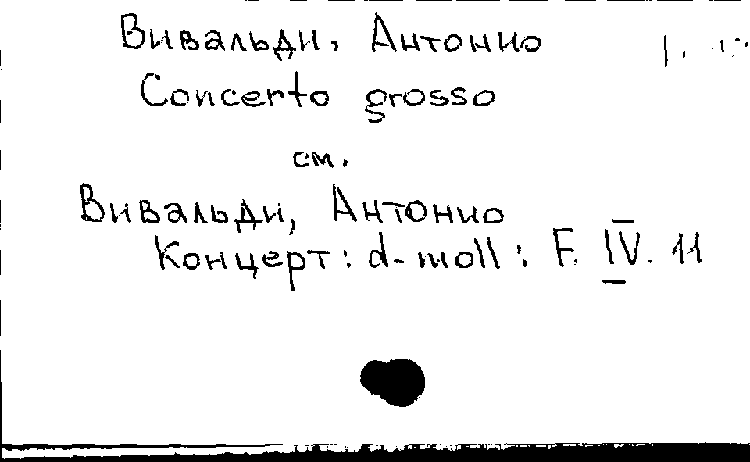 Вивальди, Антонио
Concerto grosso
см.
Вивальди, Антонио
Концерт: d-moll: F. IV. 11